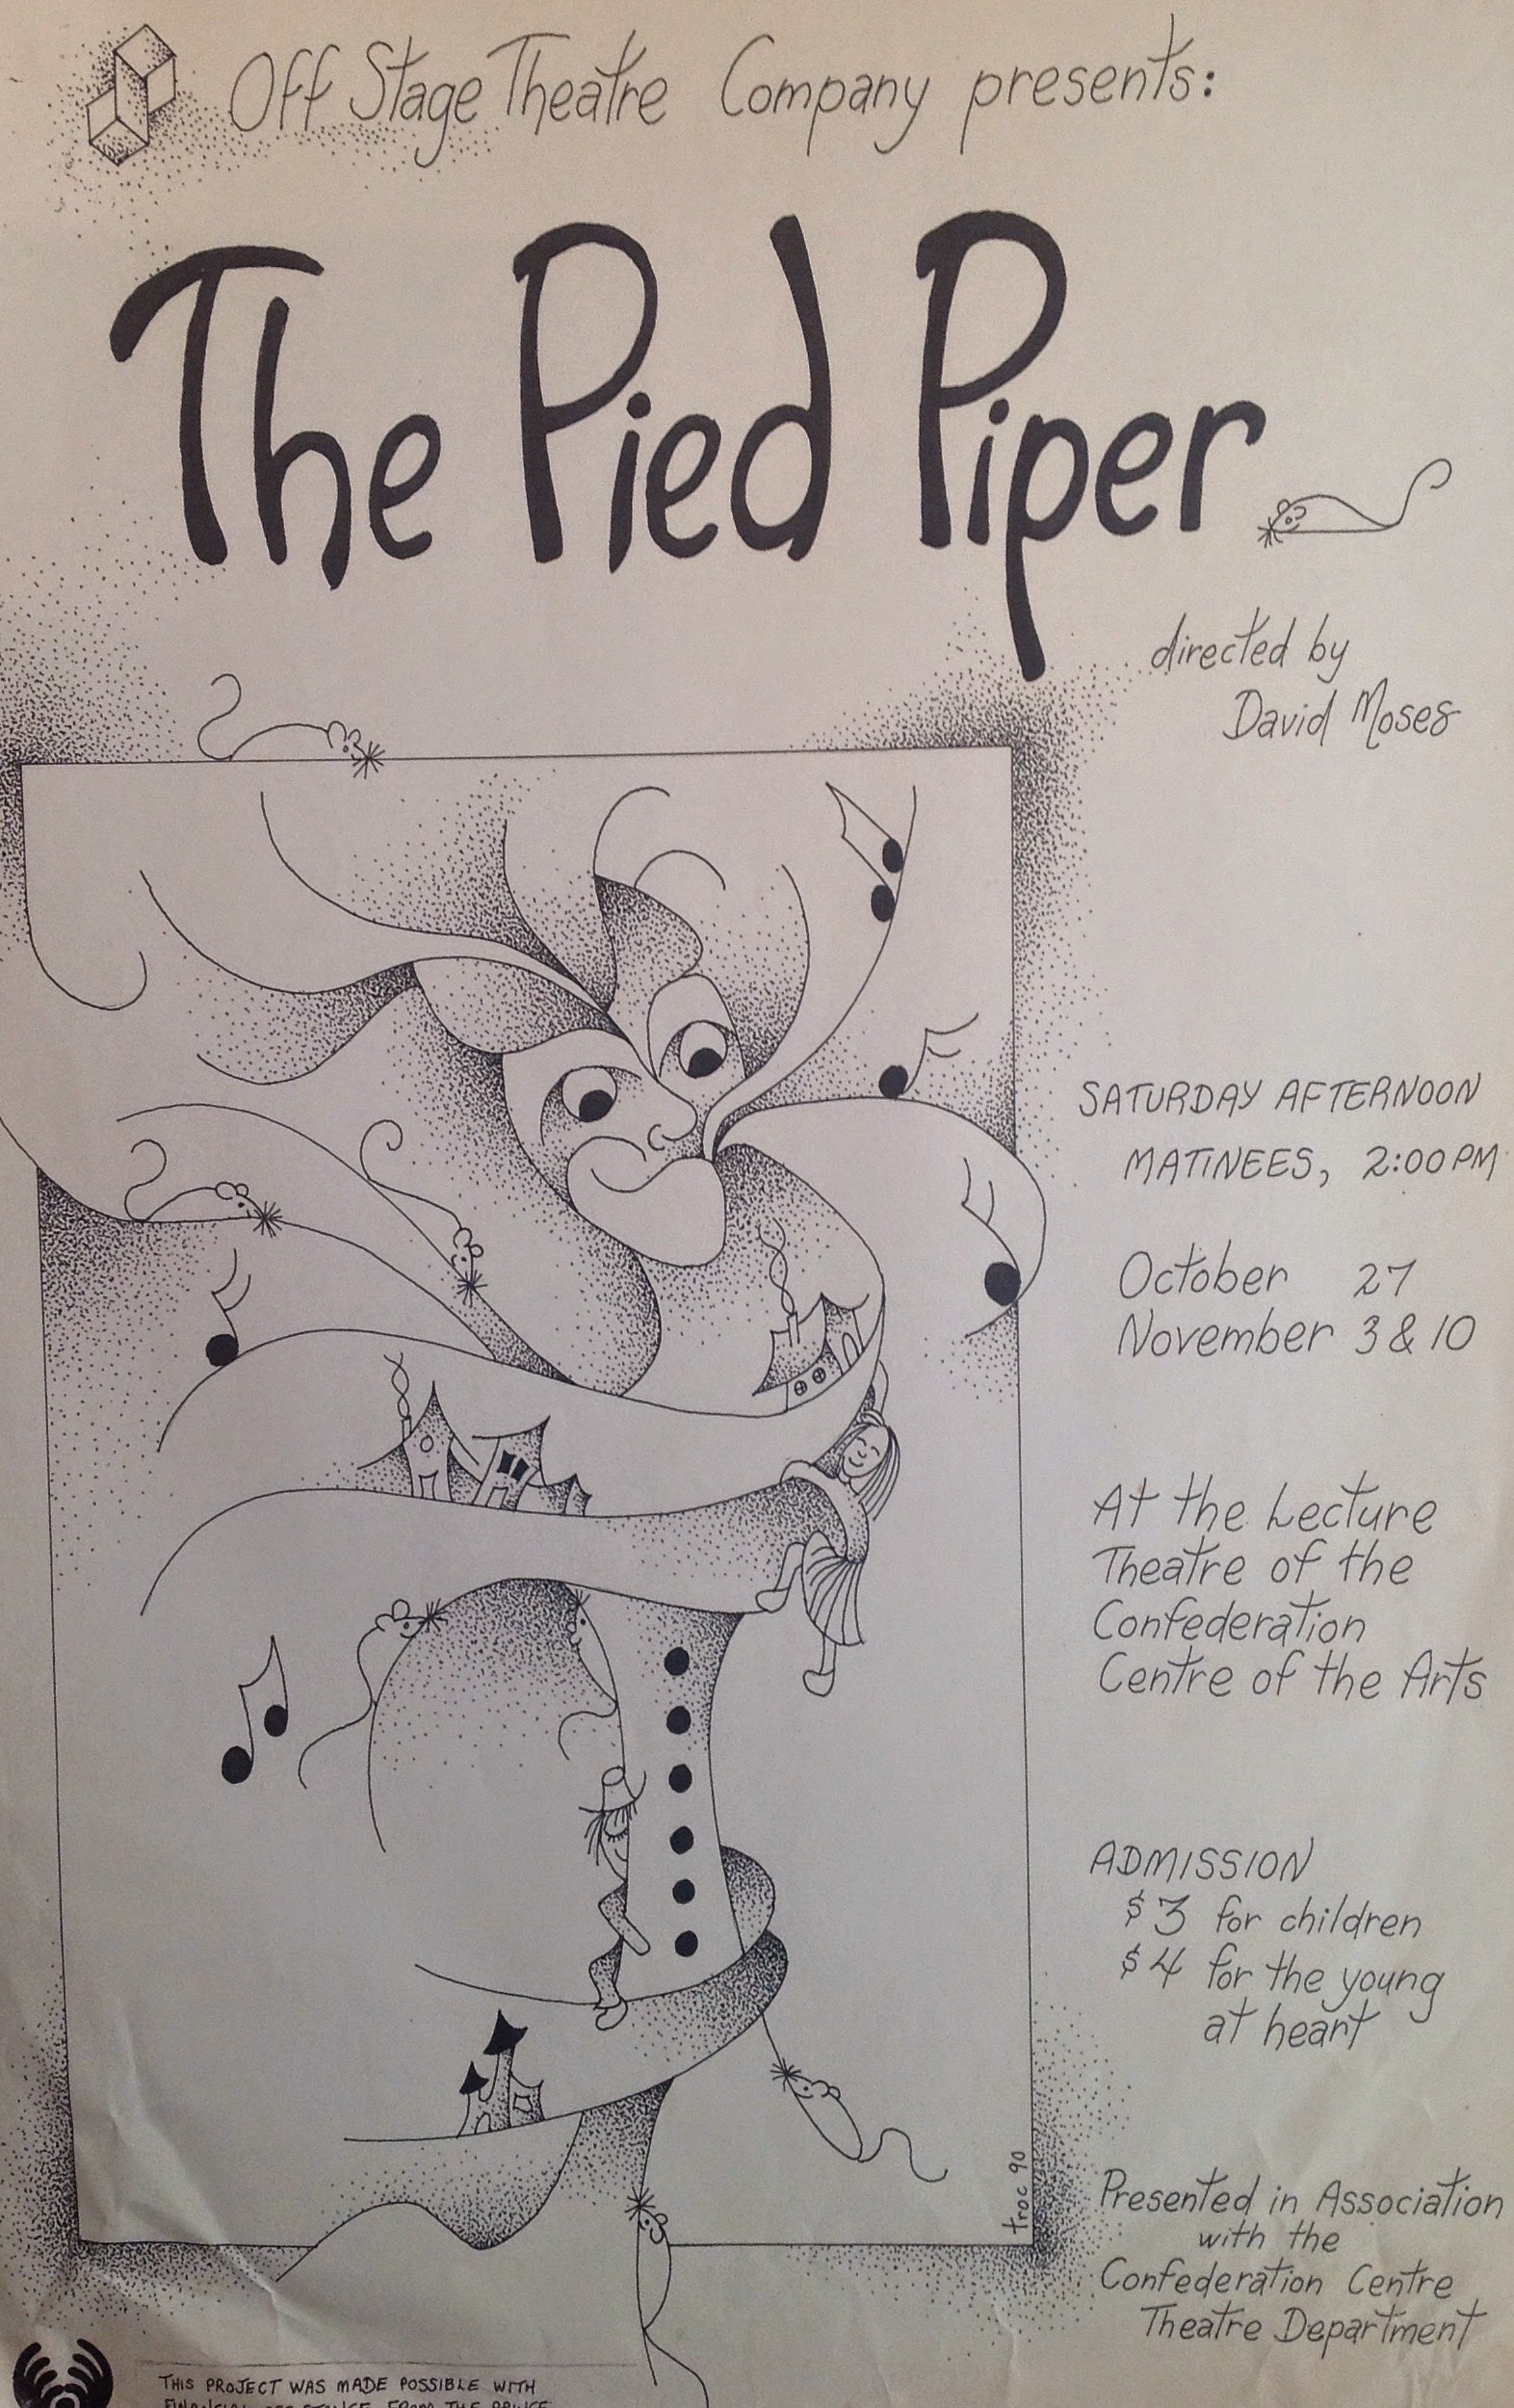 Off Stage Theatre Company presents:
The Pied Piper
directed by
David Moses
SATURDAY AFTERNOON
MATINEES, 2:00 PM
October 27
November 3 & 10
At the Lecture
Theatre of the
Confederation
Centre of the Arts
ADMISSION
$3 for children
$4 for the young
at heart
troc 90
Presented in Association
with the
Confederation Centre
Theatre Department
THIS PROJECT WAS MADE POSSIBLE WITH
FROM THE PRINCE